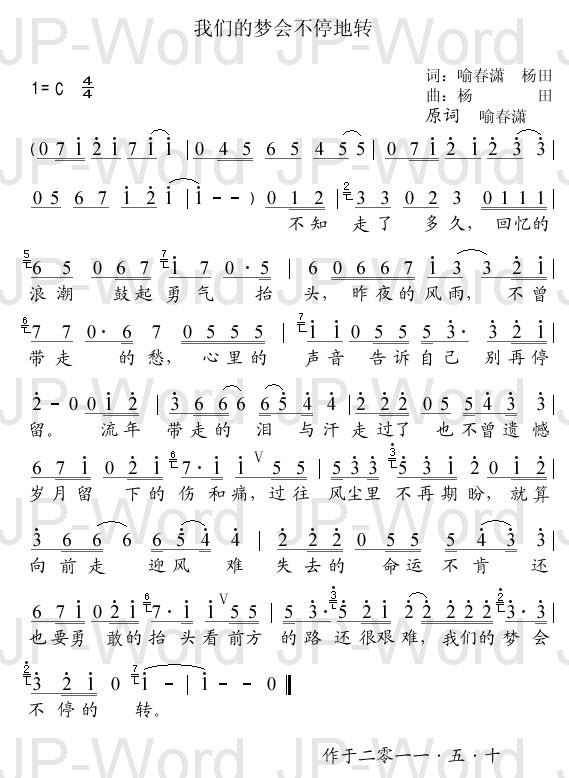 我们的梦会不停地转
1= C 4/4
词：喻春潇 杨田
曲：杨 田
原词 喻春潇
(0 7 1 2 1 7 1 1 | 0 4 5 6 5 4 5 5 | 0 7 1 2 1 2 3 3 |
0 5 6 7 1 2 1 | 1 - - ) 0 1 2 | 2 3 3 0 2 3 0 1 1 1
不知 走了 多久， 回忆的
5 6 5 0 6 7 7 1 7 0 · 5 | 6 0 6 6 7 1 3 3 2 1
浪潮 鼓起勇气 抬 头， 昨夜的风雨， 不曾
6 7 7 0 · 6 7 0 5 5 5 | 7 1 1 0 5 5 5 3 · 3 2 1
带走 的愁， 心里的 声音 告诉自己 别再停
2 - 0 0 1 2 | 3 6 6 6 6 5 4 4 | 2 2 2 0 5 5 4 3 3
留。 流年 带走的 泪 与汗走过了 也不曾遗憾
6 7 1 0 2 1 6 7 · 1 1 V 5 5 | 5 3 3 3 5 3 1 2 0 5 5
岁月留 下的伤和痛，过往 风尘里不再期盼，就算
3 6 6 6 6 5 4 4 | 2 2 2 0 2 2 3 2 3
向前走 迎风 难 失去的 命运不肯 还
6 7 1 0 2 1 6 7 · 1 1 V 5 5 | 5 3 · 5 2 1 2 2 2 2 2 2 3 · 3
也要勇 敢的抬 头看前方 的路还很艰难，我们的梦会
2 3 2 1 0 7 1 - | 1 - - 0
不停的 转。
作于二零一一·五·十
JP-Word JP-Word JP-Word